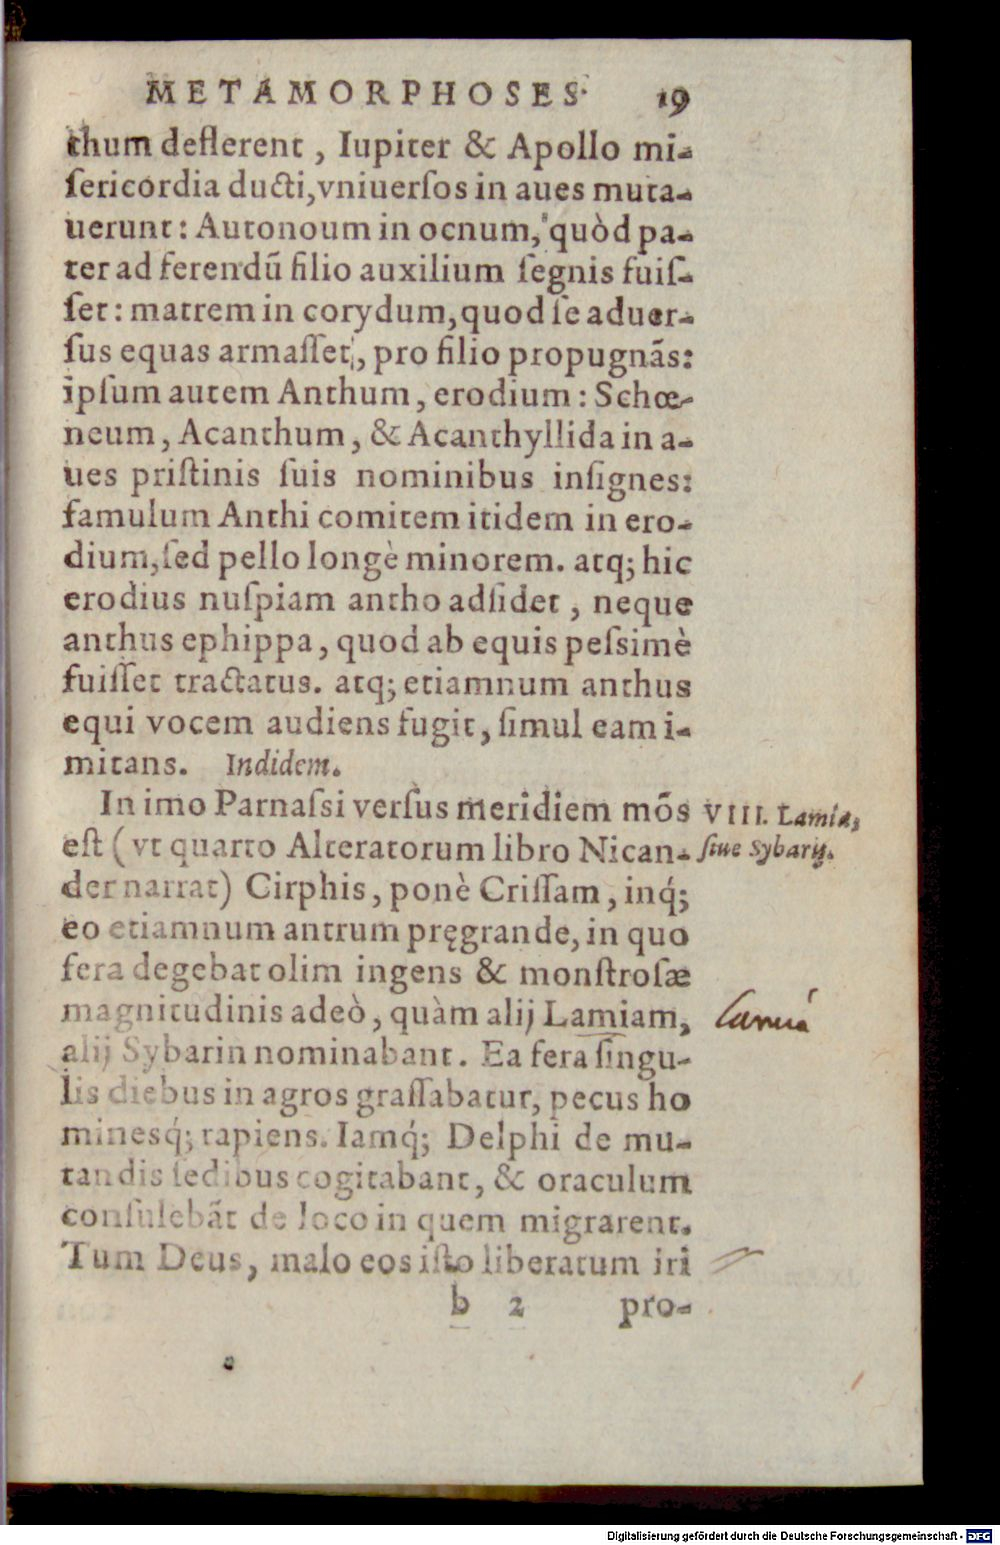 METAMORPHOSES. 19
thum deflerent, Iupiter & Apollo mi-
ſericordia ducti, vniuerſos in aues muta-
uerunt: Autonoum in ocnum, quòd pa-
ter ad ferendū filio auxilium ſegnis fuiſ-
ſet: matrem in corydum, quod ſe aduer-
ſus equas armaſſet, pro filio propugnās:
ipſum autem Anthum, erodium: Schœ-
neum, Acanthum, & Acanthyllida in a-
ues priſtinis ſuis nominibus inſignes:
famulum Anthi comitem itidem in ero-
dium, ſed pello longè minorem. atq; hic
erodius nuſpiam antho adſidet, neque
anthus ephippa, quod ab equis peſsimè
fuiſſet tractatus. atq; etiamnum anthus
equi vocem audiens fugit, ſimul eam i-
mitans. Indidem.
In imo Parnaſsi verſus meridiem mōs
VIII. Lamia,
eſt (vt quarto Alteratorum libro Nican-
ſiue Sybarĳ.
der narrat) Cirphis, ponè Criſſam, inq́;
eo etiamnum antrum pręgrande, in quo
fera degebat olim ingens & monſtroſæ
magnitudinis adeò, quàm alij Lamiam,
Lamiá
alij Sybarin nominabant. Ea fera ſingu-
lis diebus in agros graſſabatur, pecus ho
minesq́; rapiens. Iamq́; Delphi de mu-
tandis ſedibus cogitabant, & oraculum
conſulebāt de loco in quem migrarent.
Tum Deus, malo eos iſto liberatum iri
b 2 pro-
Digitalisierung gefördert durch die Deutsche Forschungsgemeinschaft - DFG